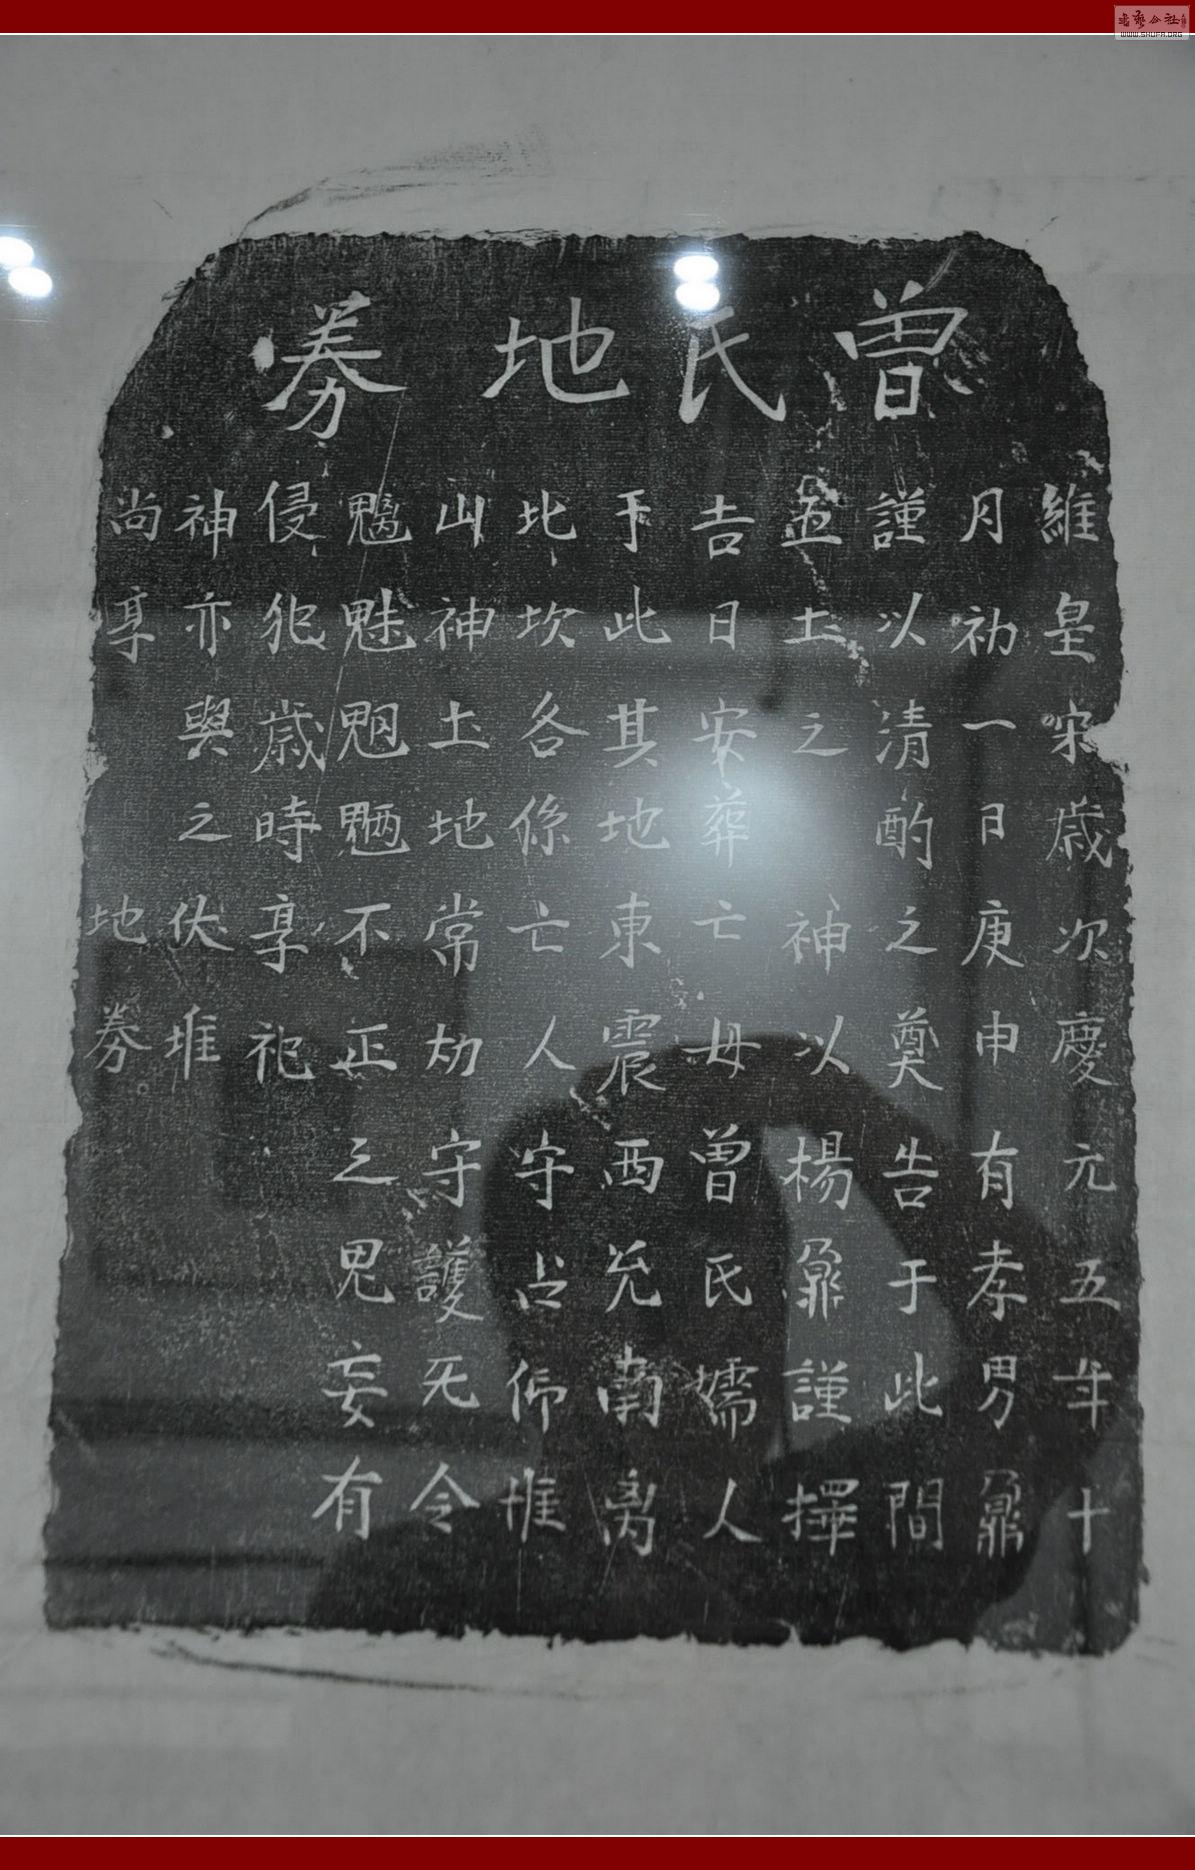 曾氏地券
維皇宋歳次慶元五年十
月初一日庚申有孝男鼐
謹以清酌之奠告于此間
五土之神以楊鼐謹擇
吉日安葬亡母曾氏孺人
于此其地東震西兌南离
北坎各係亡人守占仰惟
山神土地常切守護旡令
魑魅魍魎不正之鬼妄有
侵犯歳時享祀
神亦與之伏惟
尚享 地券
WWW.SHUFA.ORG